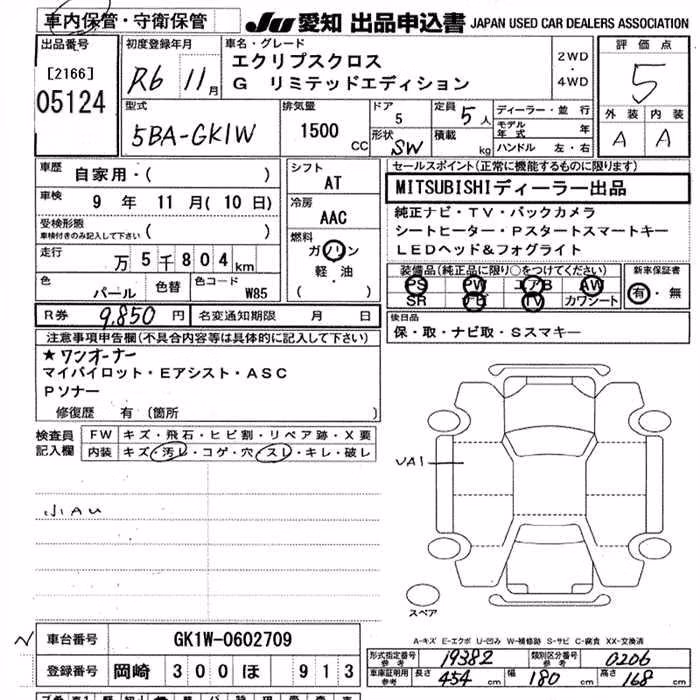 車内保管・守衛保管
JU 愛知 出品申込書 JAPAN USED CAR DEALERS ASSOCIATION
出品番号
[2166]
05124
初度登録年月
R6 11月
車名・グレード
エクリプスクロス
G リミテッドエディション
2WD
・
4WD
評価点
5
外装 内装
A A
型式
5BA-GK1W
排気量
1500 CC
ドア
5
形状
SW
定員
5人
積載
kg
ディーラー・並行
モデル年式 年
ハンドル 左・右
車歴
自家用・( )
車検
9年 11月(10日)
受検形態
車検付きのみ記入して下さい ( )
走行
万5千804km
色
パール
色替
色コード
W85
シフト
AT
冷房
AAC
燃料
ガソリン
軽・油
( )
セールスポイント(正常に機能するものに限ります)
MITSUBISHIディーラー出品
純正ナビ・TV・バックカメラ
シートヒーター・Pスタートスマートキー
LEDヘッド&フォグライト
装備品(純正品に限り○をつけてください)
PS PW エアB AW
SR ナビ TV カワシート
新車保証書
有・無
R券 9,850円 名変通知期限 月 日
後日品
保・取・ナビ取・Sスマキー
注意事項申告欄(不具合内容等は具体的に記入して下さい)
★ワンオーナー
マイパイロット・Eアシスト・ASC
Pソナー
修復歴 有(箇所 )
検査員
記入欄
FW キズ・飛石・ヒビ割・リペア跡・X要
内装 キズ・汚レ・コゲ・穴・スレ・キレ・破レ
UA1
スペア
車台番号 GK1W-0602709
登録番号 岡崎 300 ほ 913
A-キズ E-エクボ U-凹み W-補修跡 S-サビ C-腐食 XX-交換済
形式指定番号
参考
19382
類別区分番号
参考
0206
車庫証明用
参考
長さ 454 cm 幅 180 cm 高さ 168 cm